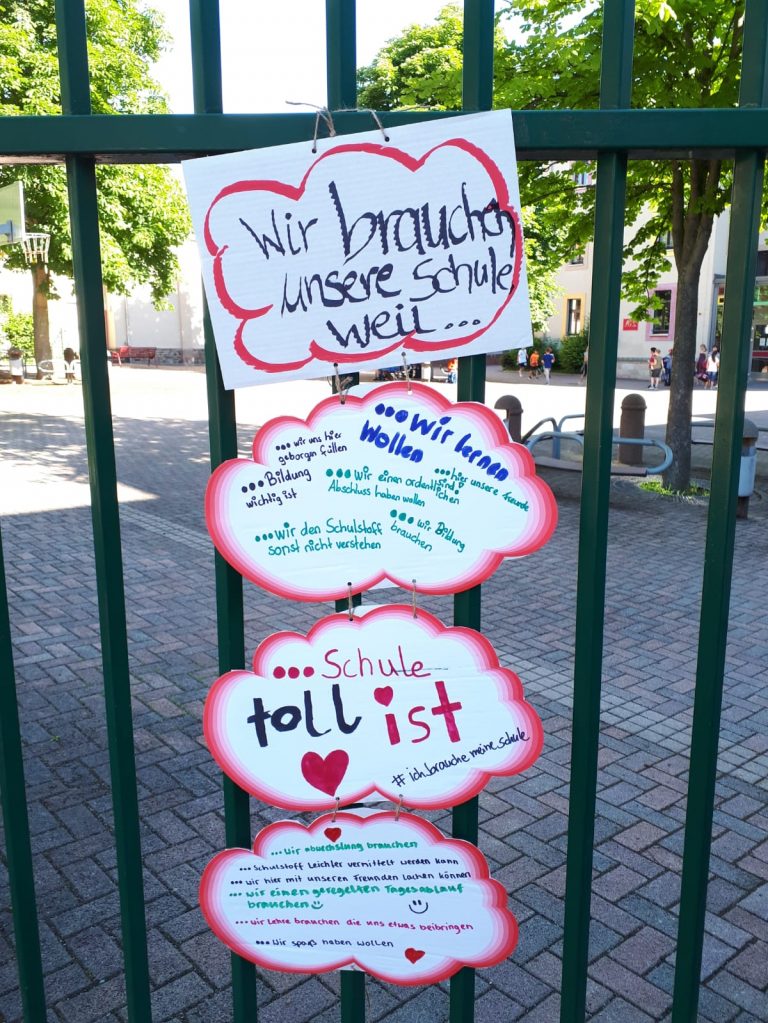 Wir brauchen
unsere Schule,
weil...
...wir uns hier
geborgen fühlen
...Wir lernen
Wollen
...Bildung
wichtig ist
...Wir einen ordentlichen
Abschluss haben wollen
...hier unsere Freunde
sind
...wir den Schulstoff
sonst nicht verstehen
...wir Bildung
brauchen
...Schule
toll ist
#ich_brauche_meine_schule
...Wir abwechslung brauchen
...Schulstoff Leichter vermittelt werden kann
...wir hier mit unseren Freunden lachen können
...wir einen geregelten Tagesablauf
brauchen
...wir Lehre brauchen die uns etwas beibringen
...Wir spaß haben wollen